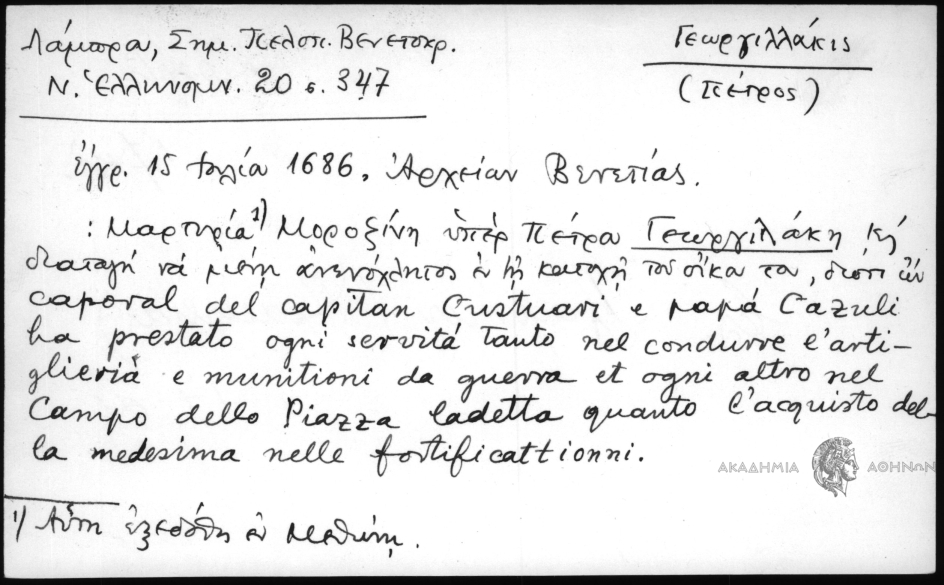 Λάμπρα, Σημ. Πελοπ. Βενετοκρ.
Ν. Ἑλληνομν. 20 σ. 347
Γεωργιλλάκις
(Πέτρος)
ἐγγρ. 15 Ιουλία 1686, Ἀρχείαν Βενετίας.
: Μαρτυρία¹⁾ Μοροζίνη ὑπέρ Πέτρα Γεωργιλάκη κ̓
διαταγή νά μένῃ ἀνενόχλητος ἐν τῇ κατοχῇ τοῦ οἴκα τα, διότι ὢν
caporal del capitan Custuari e papá Cazuli
ha prestato ogni servitá tanto nel condurre l'arti-
glieria e munitioni da guerra et ogni altro nel
Campo dello Piazza ladetta quanto l'acquisto del-
la medesima nelle fortificattionni.
ΑΚΑΔΗΜΙΑ ΑΘΗΝΩΝ
1) Αὕτη ἐξεδόθη ἐν Μεθώνῃ.